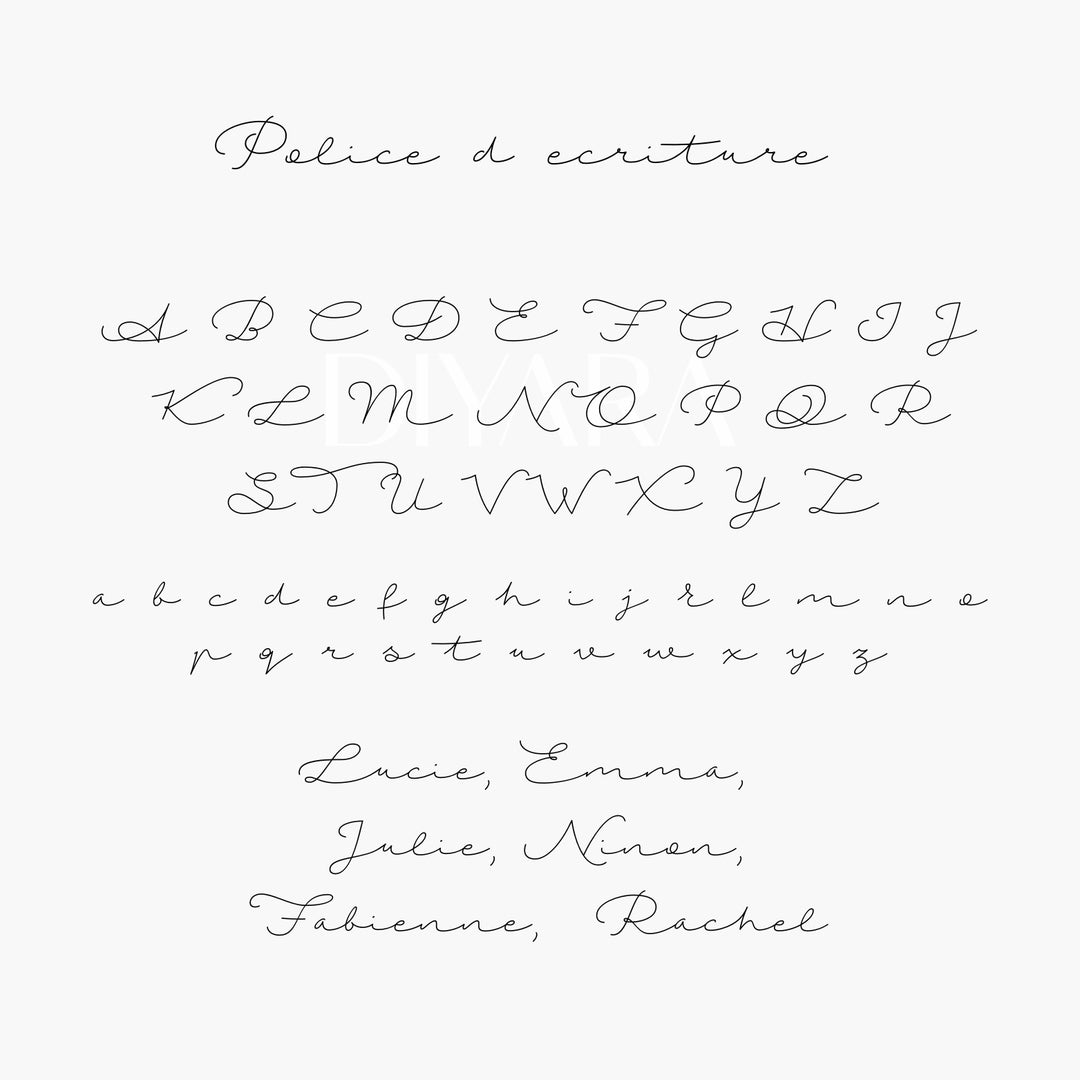 Police d ecriture
A B C D E F G H I J
DIYARA
K L M N O P Q R
S T U V W X Y Z
a b c d e f g h i j k l m n o
p q r s t u v w x y z
Lucie, Emma,
Julie, Ninon,
Fabienne, Rachel